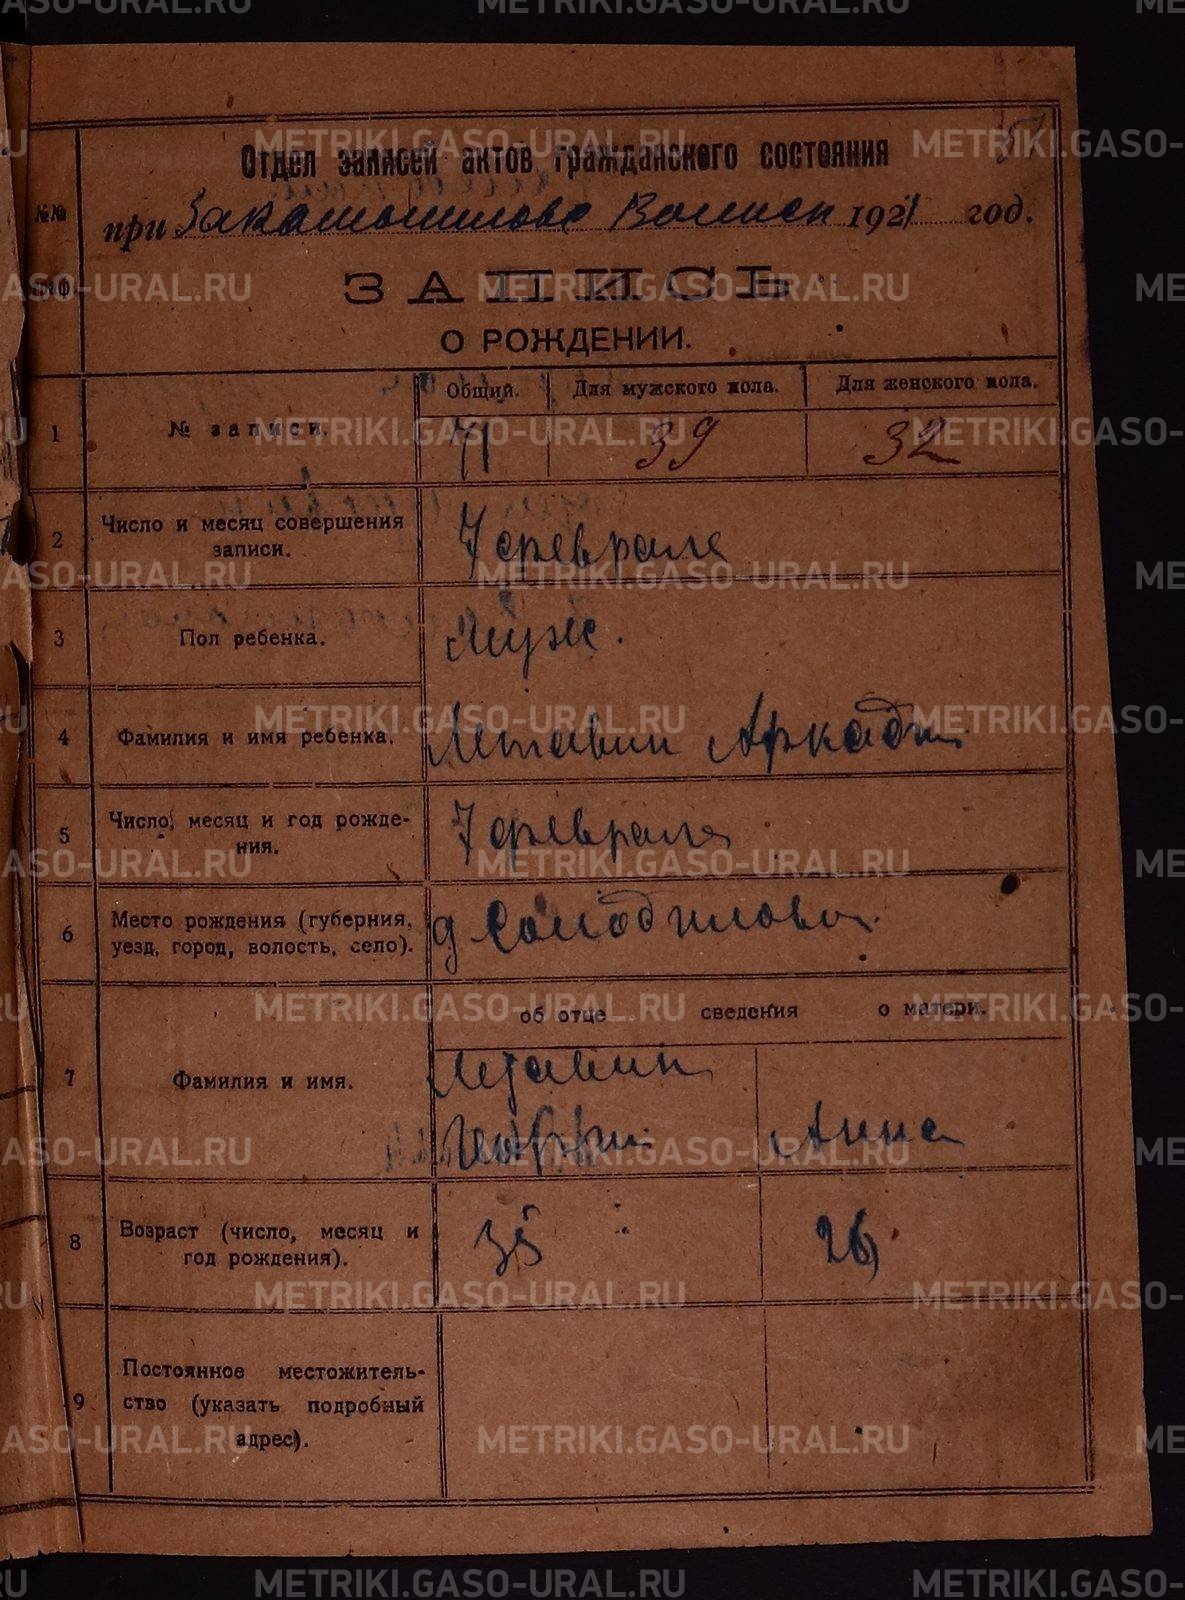 METRIKI.GASO-URAL.RU
57
Отдел записей актов гражданского состояния
при Закатошилово Волисп 1921 год.
№№
граф
ЗАПИСЬ
О РОЖДЕНИИ.
Общий. Для мужского пола. Для женского пола.
1 № записи. 71 39 32
2 Число и месяц совершения записи. 7 февраля
3 Пол ребенка. Муж.
4 Фамилия и имя ребенка. Летавин Аркади
5 Число, месяц и год рожде-
ния. 7 февраля
6 Место рождения (губерния,
уезд, город, волость, село). д Солодилово
об отце сведения о матери.
7 Фамилия и имя. Летавин
Анна
8 Возраст (число, месяц и
год рождения). 35 26
9 Постоянное местожитель-
ство (указать подробный
адрес).